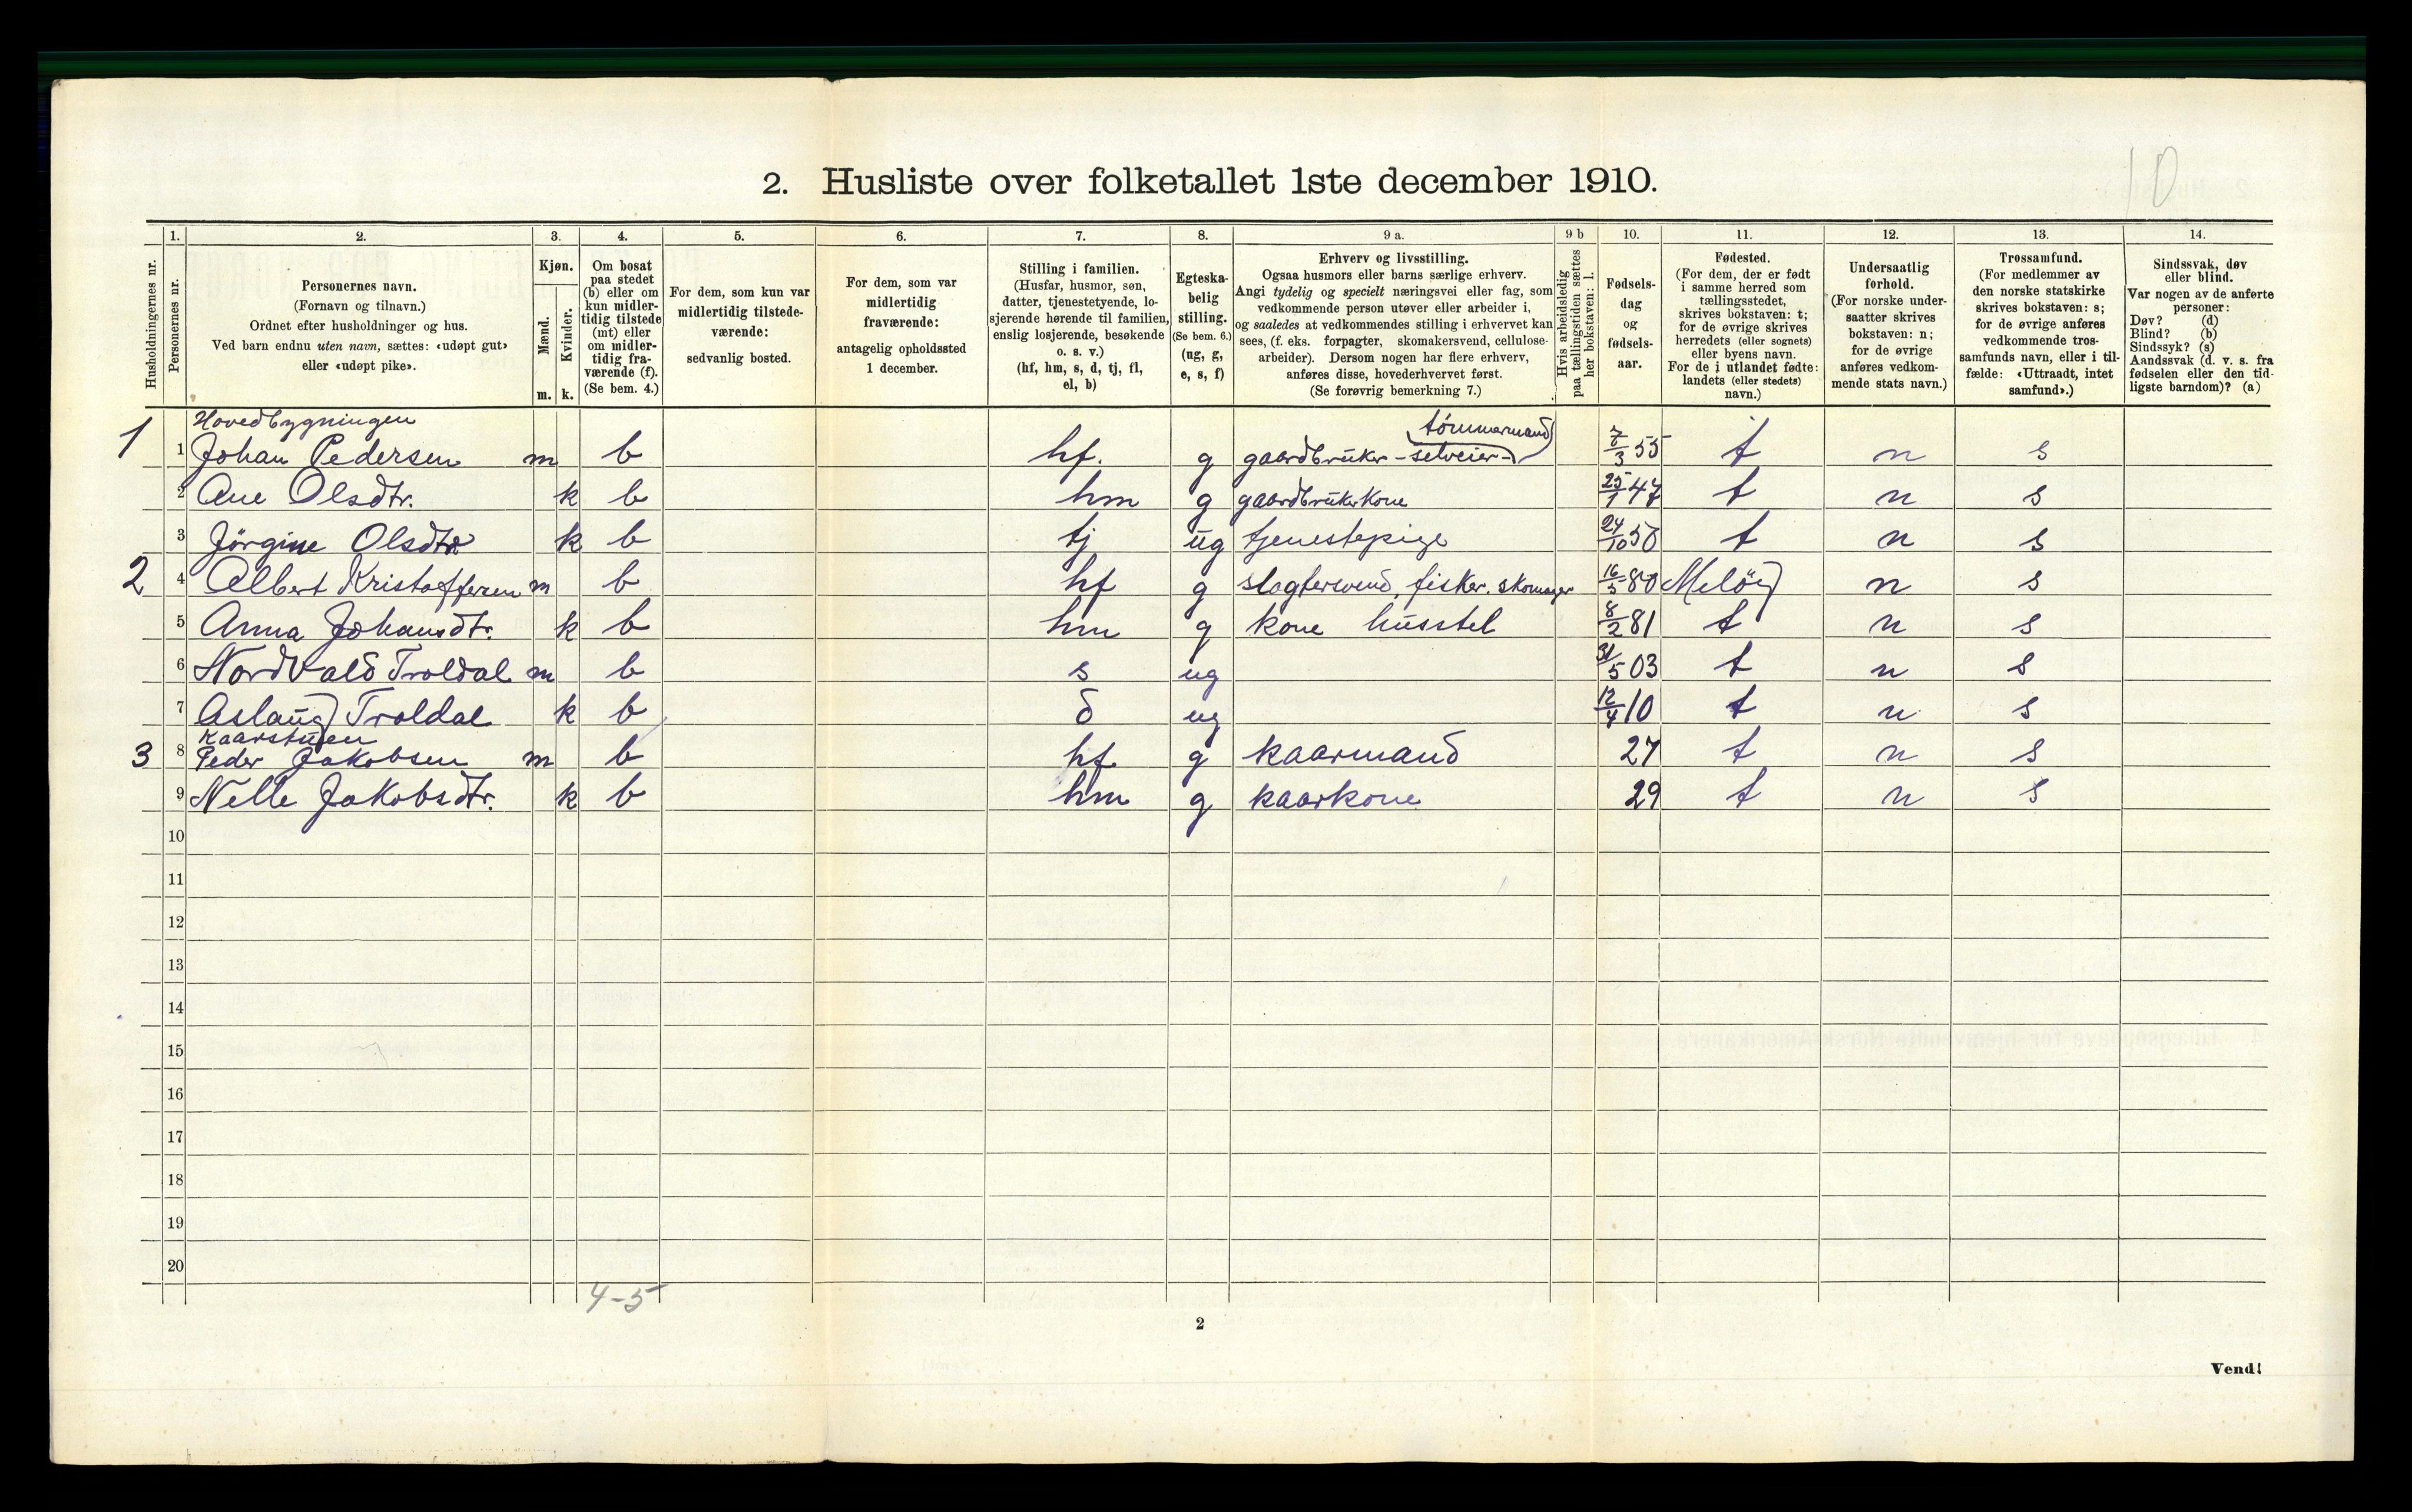 10
2. Husliste over folketallet 1ste december 1910.
1. 2. 3. 4. 5. 6. 7. 8. 9 a. 9 b 10. 11. 12. 13. 14.
Husholdningernes nr.
Personernes nr.
Personernes navn.
(Fornavn og tilnavn.)
Ordnet efter husholdninger og hus.
Ved barn endnu uten navn, sættes: «udøpt gut»
eller «udøpt pike».
Kjøn.
Mænd.
Kvinder.
m. k.
Om bosat
paa stedet
(b) eller om
kun midler-
tidig tilstede
(mt) eller
om midler-
tidig fra-
værende (f).
(Se bem. 4.)
For dem, som kun var
midlertidig tilstede-
værende:
sedvanlig bosted.
For dem, som var
midlertidig
fraværende:
antagelig opholdssted
1 december.
Stilling i familien.
(Husfar, husmor, søn,
datter, tjenestetyende, lo-
sjerende hørende til familien,
enslig losjerende, besøkende
o. s. v.)
(hf, hm, s, d, tj, fl,
el, b)
Egteska-
belig
stilling.
(Se bem. 6.)
(ug, g,
e, s, f)
Erhverv og livsstilling.
Ogsaa husmors eller barns særlige erhverv.
Angi tydelig og specielt næringsvei eller fag, som
vedkommende person utøver eller arbeider i,
og saaledes at vedkommendes stilling i erhvervet kan
sees, (f. eks. forpagter, skomakersvend, cellulose-
arbeider). Dersom nogen har flere erhverv,
anføres disse, hovederhvervet først.
(Se forøvrig bemerkning 7.)
Hvis arbeidsledig
paa tællingstiden sættes
her bokstaven: l.
Fødsels-
dag
og
fødsels-
aar.
Fødested.
(For dem, der er født
i samme herred som
tællingsstedet,
skrives bokstaven: t;
for de øvrige skrives
herredets (eller sognets)
eller byens navn.
For de i utlandet fødte:
landets (eller stedets)
navn.)
Undersaatlig
forhold.
(For norske under-
saatter skrives
bokstaven: n;
for de øvrige
anføres vedkom-
mende stats navn.)
Trossamfund.
(For medlemmer av
den norske statskirke
skrives bokstaven: s;
for de øvrige anføres
vedkommende tros-
samfunds navn, eller i til-
fælde: «Uttraadt, intet
samfund».)
Sindssvak, døv
eller blind.
Var nogen av de anførte
personer:
Døv? (d)
Blind? (b)
Sindssyk? (s)
Aandssvak (d. v. s. fra
fødselen eller den tid-
ligste barndom)? (a)
Hovedbygningen
tömmermand
1 1 Johan Pedersen m b hf. g gaardbruker - selveier - 7/3 55 t n s
2 Ane Olsdtr. k b hm g gaardbrukerkone 25/1 47 t n s
3 Jörgine Olsdtr k b tj ug tjenestepige 24/10 50 t n s
2 4 Albert Kristoffersen m b hf g slagtersvend, fisker. skomager 16/5 80 Melöy n s
5 Anna Johansdtr. k b hm g kone husstel 8/2 81 t n s
6 Nordvald Troldal m b s ug 31/5 03 t n s
7 Aslaug Troldal k b d ug 12/4 10 t n s
Kaarstuen
3 8 Peder Jakobsen m b hf g kaarmand 27 t n s
9 Nelle Jakobsdtr. k b hm g kaarkone 29 t n s
10
11
12
13
14
15
16
17
18
19
20
4-5
2
Vend!